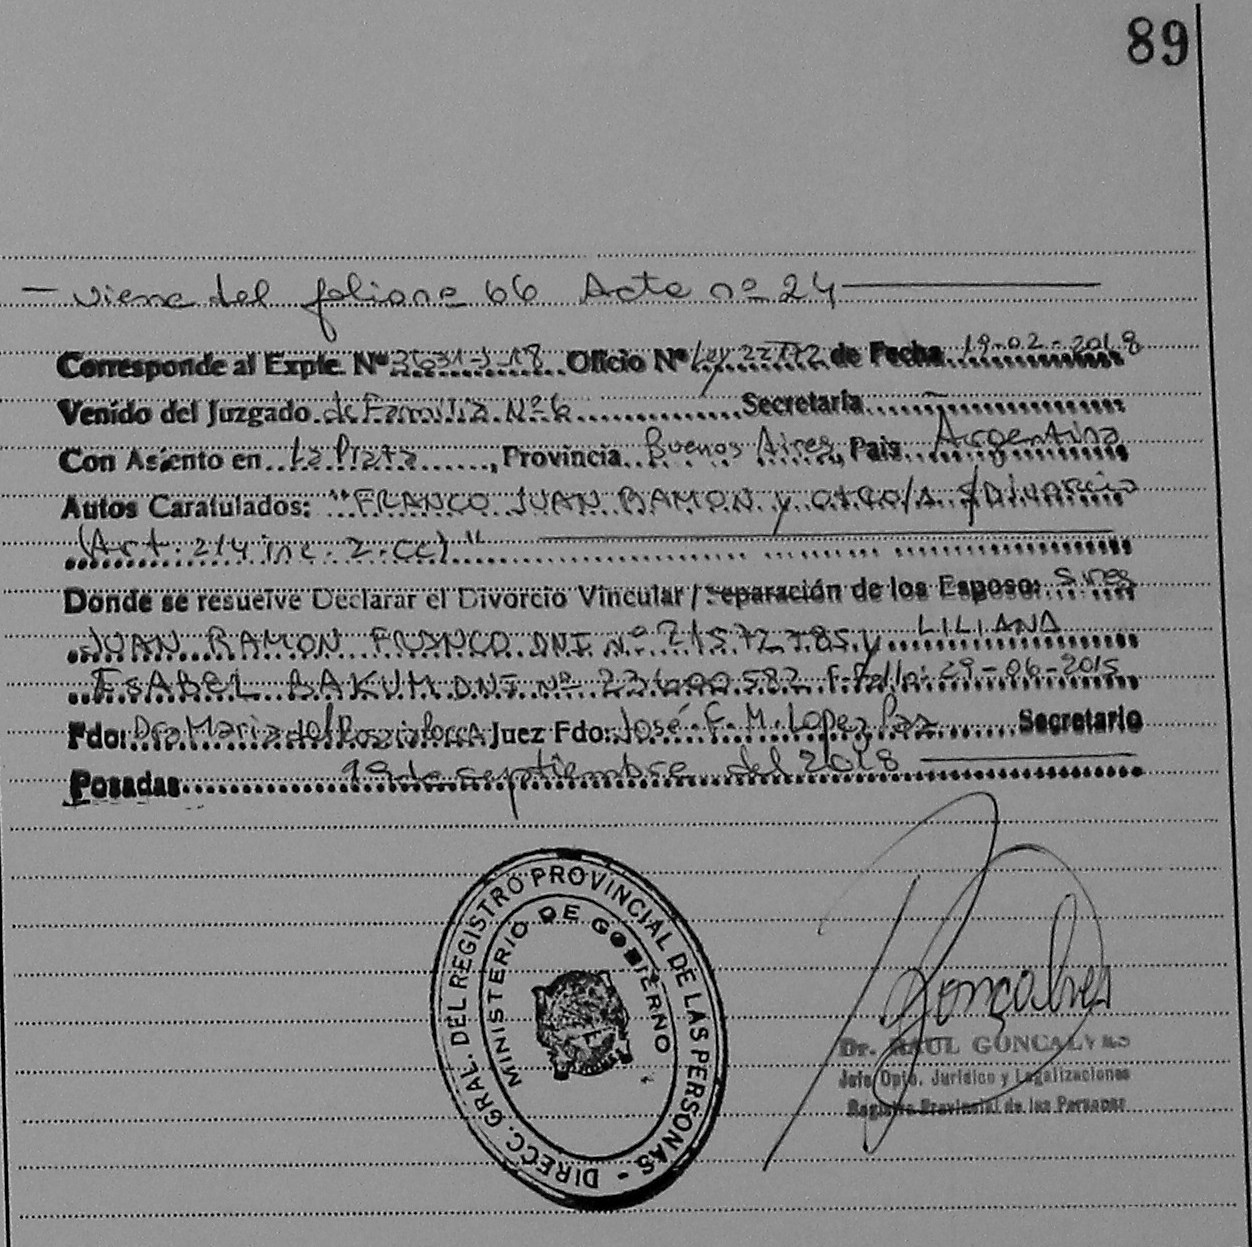 89
— viene del folio nº 66 Acta nº 24 —
Corresponde al Expte. Nº 3631-J-18 Oficio Nº Ley 22172 de Fecha 19-02-2018
Venido del Juzgado de Familia Nº 6 Secretaría —
Con Asiento en La Plata, Provincia Buenos Aires, País Argentina
Autos Caratulados: "FRANCO JUAN RAMON y otro/a s/Divorcio
(Art. 214 inc. 2. CC)"
Donde se resuelve Declarar el Divorcio Vincular / Separación de los Esposo: Sres
JUAN RAMON FRANCO DNI nº 21572785 y LILIANA
ISABEL BAKUM DNI Nº 23600582 F. Fallo: 29-06-2015
Fdo: Dra María del Juez Fdo: José F. M. Lopez Paz Secretario
Posadas 19 de septiembre del 2018 —
DIRECC. GRAL. DEL REGISTRO PROVINCIAL DE LAS PERSONAS -
MINISTERIO DE GOBIERNO
Gonçalves
Dr. RAUL GONCALVES
Jefe Dpto. Jurídico y Legalizaciones
Registro Provincial de las Personas